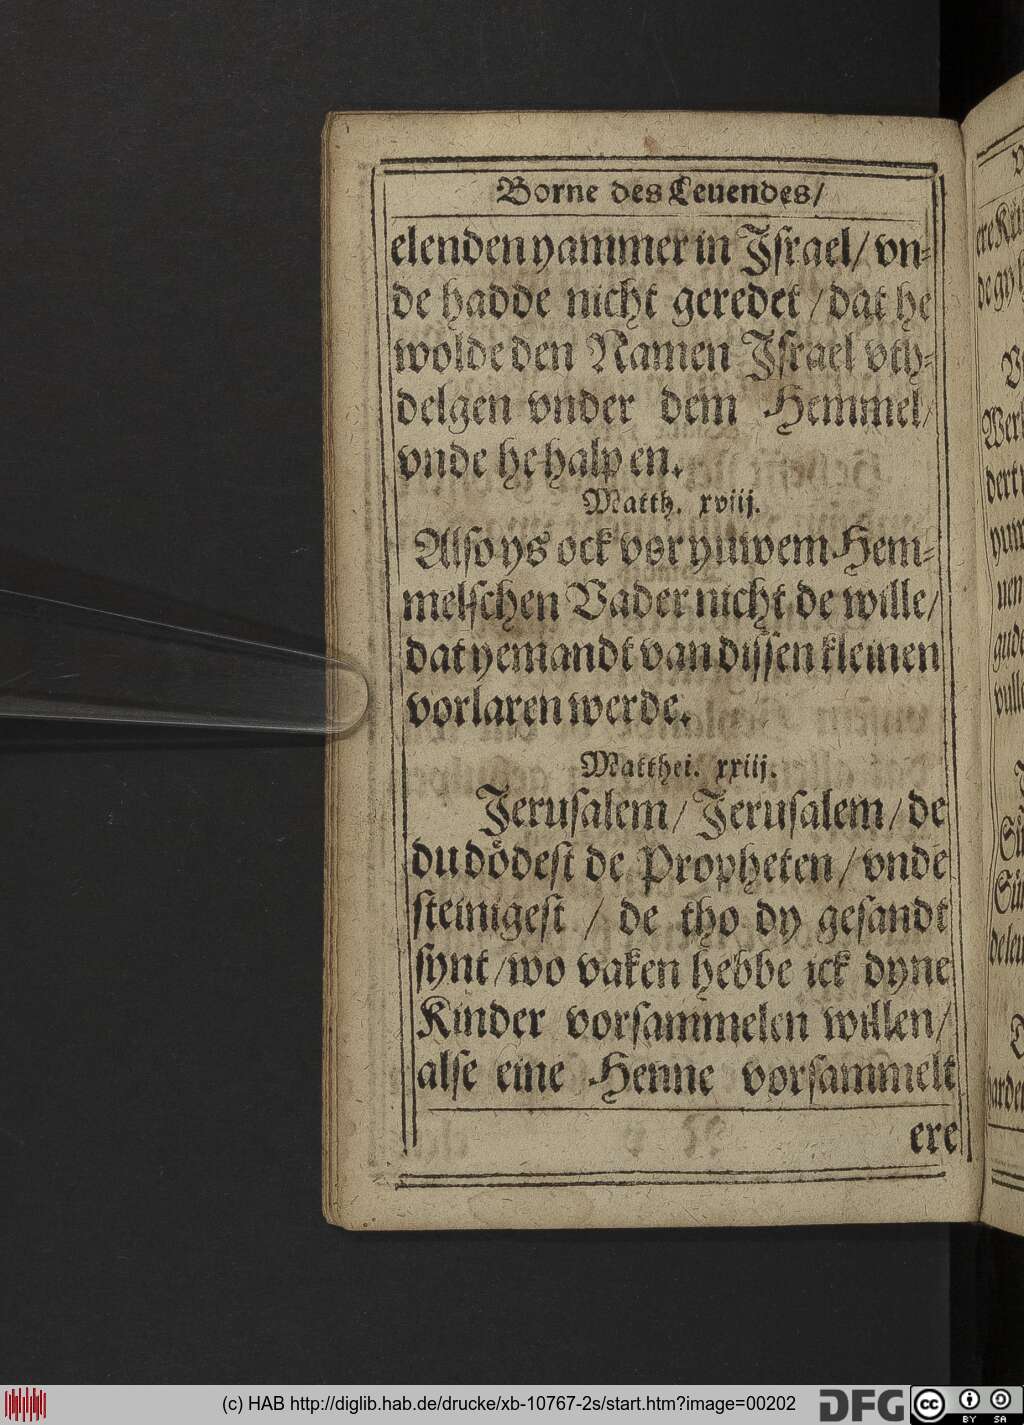 Borne des Leuendes/
elenden yammer in Jſrael/ vn-
de hadde nicht geredet/ dat he
wolde den Namen Jſrael vth-
delgen vnder dem Hemmel/
vnde he halp en.
Matth. xviij.
Alſo ys ock vor yuwem Hem-
melſchen Vader nicht de wille/
dat yemandt van diſſen kleinen
vorlaren werde.
Matthei. xxiij.
Jeruſalem/ Jeruſalem/ de
du doͤdeſt de Propheten/ vnde
ſteinigeſt/ de tho dy geſandt
ſynt/ wo vaken hebbe ick dyne
Kinder vorſammelen willen/
alſe eine Henne vorſammelt
ere
(c) HAB http://diglib.hab.de/drucke/xb-10767-2s/start.htm?image=00202
DFG
cc
BY SA